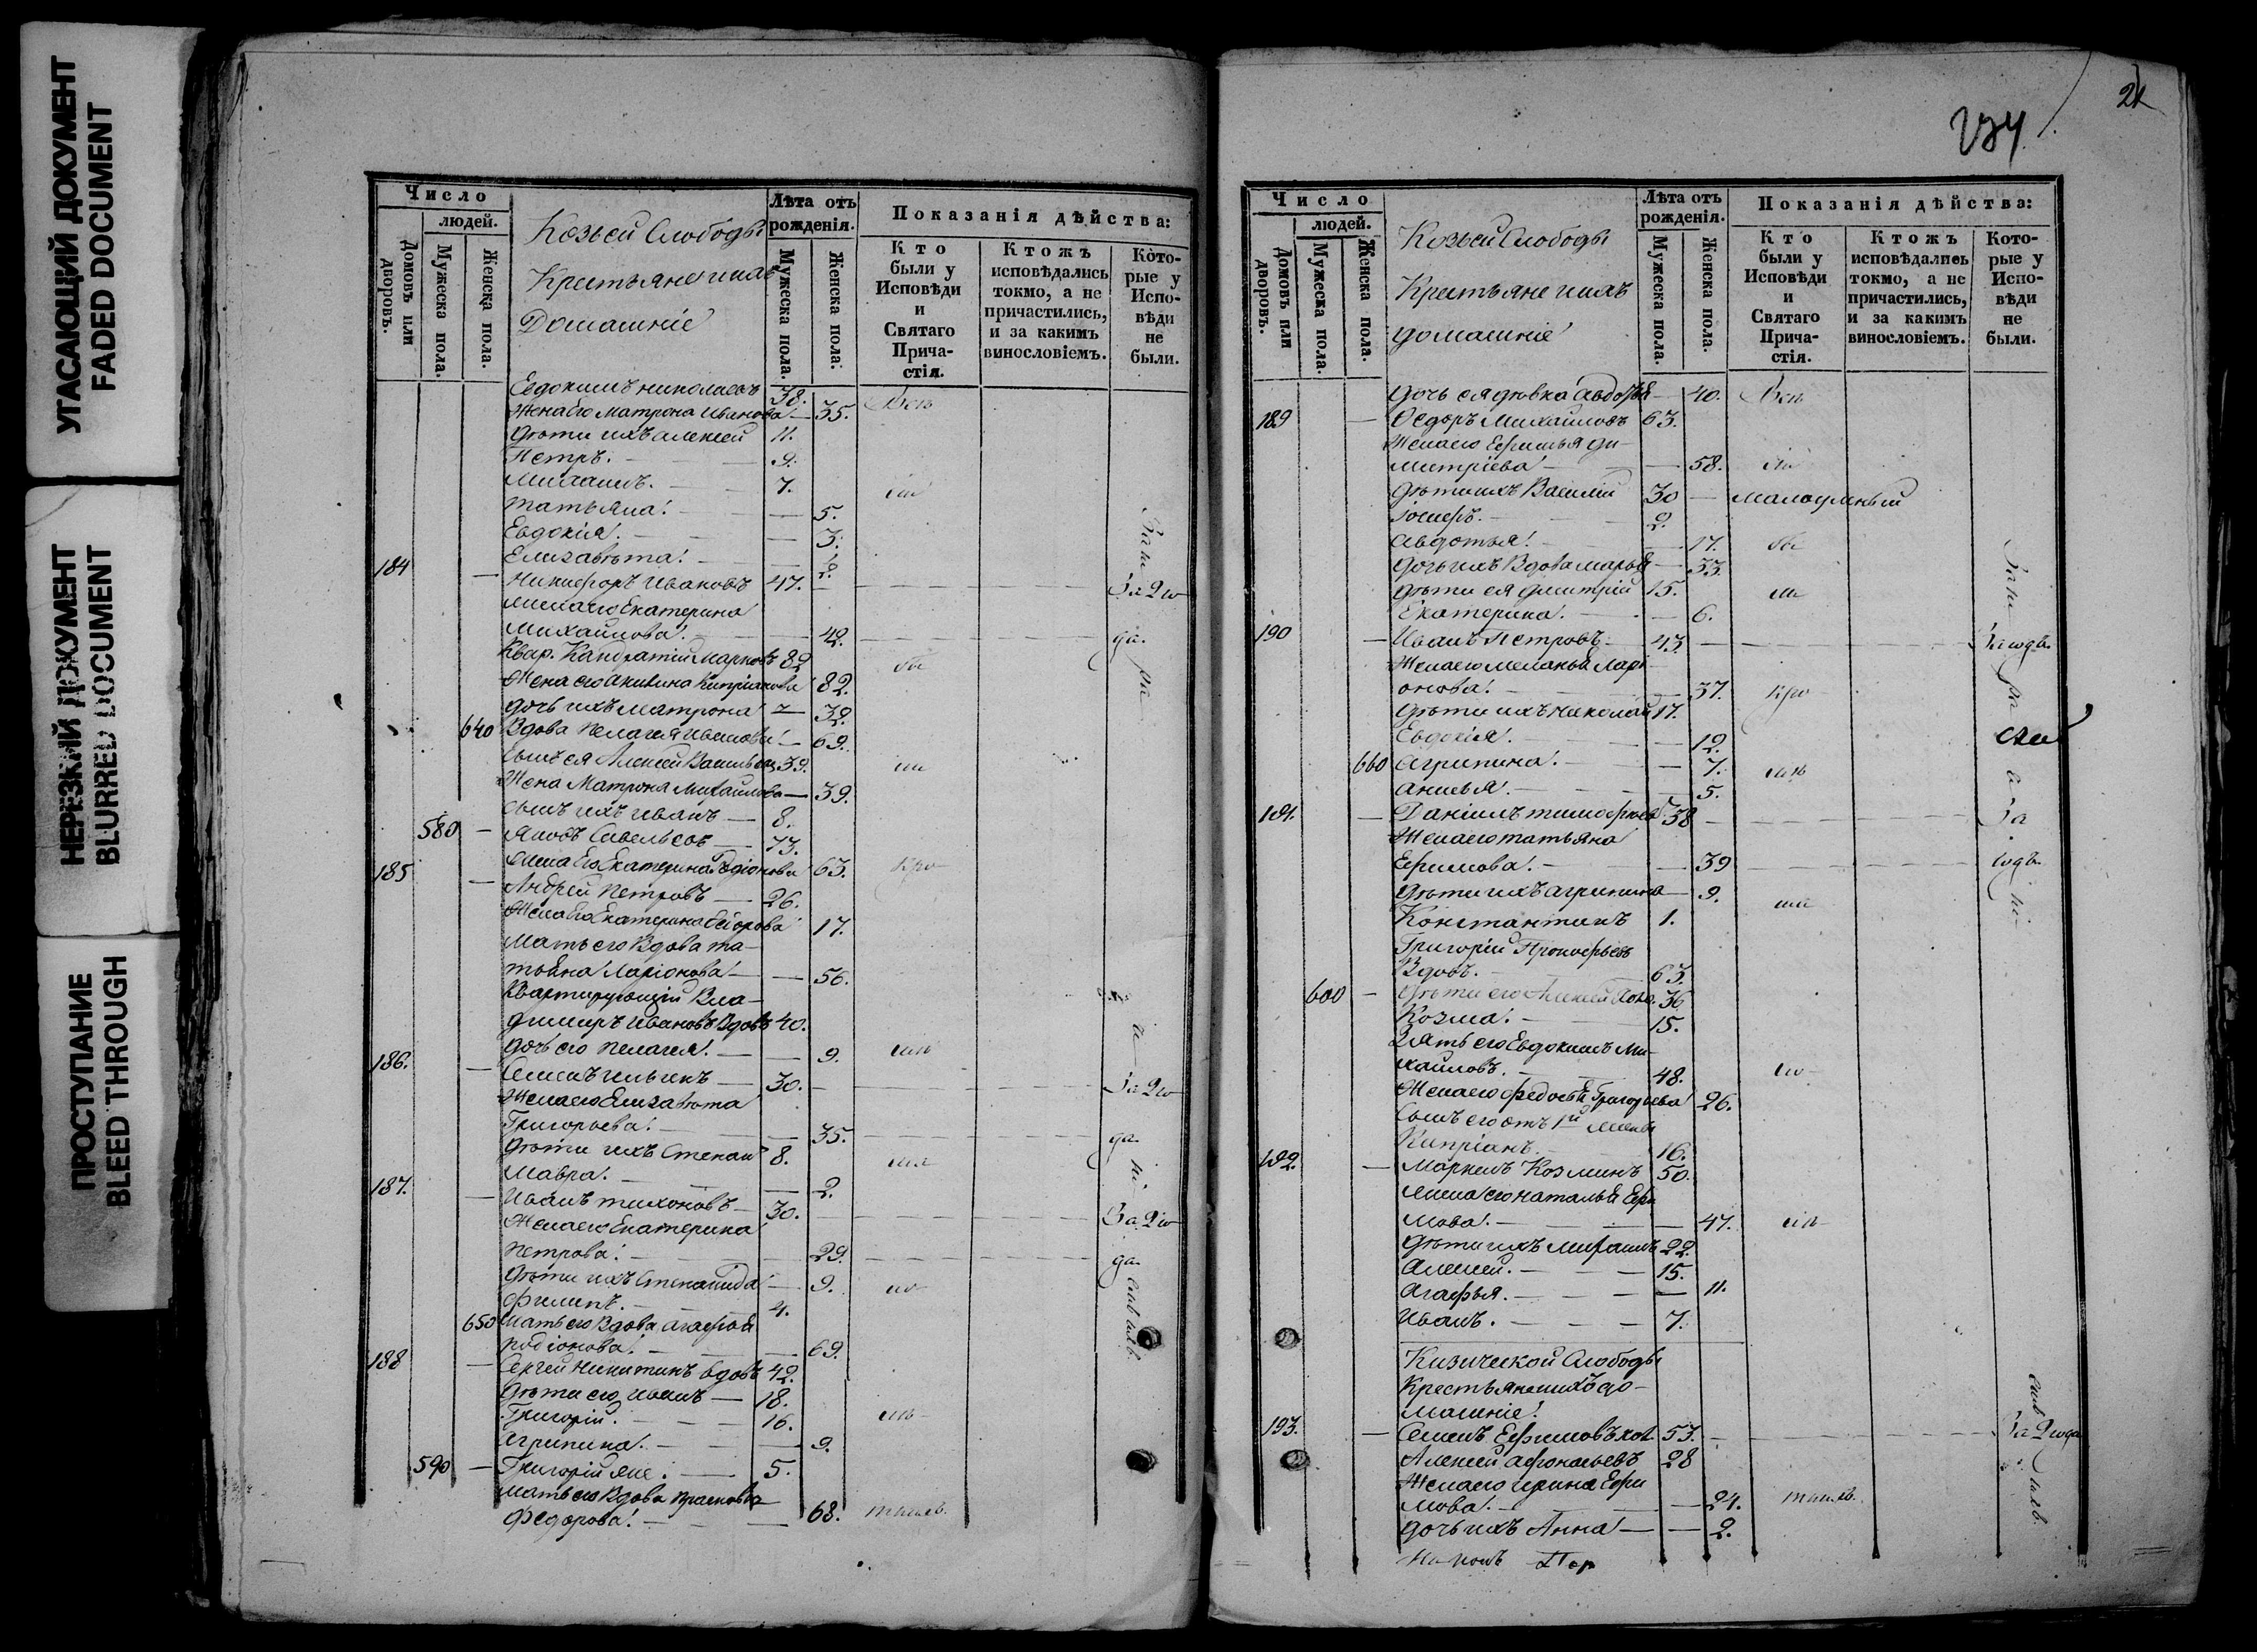 УГАСАЮЩИЙ ДОКУМЕНТ
FADED DOCUMENT
НЕРЕЗКИЙ ДОКУМЕНТ
BLURRED DOCUMENT
ПРОСТУПАНИЕ
BLEED THROUGH
Число
людей.
Домовъ или дворовъ.
Мужеска пола.
Женска пола.
Козьей Слободы
Крестьяне и ихъ
Домашніе
Лѣта отъ рожденія.
Мужеска пола.
Женска пола.
Показанія дѣйства:
Кто были у Исповѣди и Святаго Прича-стія.
Ктожъ исповѣдались токмо, а не причастились, и за какимъ винословіемъ.
Кото-рые у Испо-вѣди не были.
Евдокимъ Николаевъ 38.
Жена Его Матрона Иванова 35.
Дѣти ихъ Алексей 11.
Петръ. 9.
Михаилъ. 7.
Татьяна. 5.
Евдокія. 3.
Елизавѣта.
184 Никифоръ Ивановъ 47. За 2 го
Жена его Екатерина
Михайлова. 42. да.
Квар. Кандратій Марковъ 82
Жена его Акилина Кипріанова 82.
дочь ихъ Матрона 32.
640 Вдова Пелагея Иванова 69.
Сынъ ея Алексей Васильевъ 39.
Жена Матрона Михайлова 39.
сынъ ихъ Иванъ 8.
580 Яковъ Савельевъ 73.
Жена Его Екатерина Родіонова 63.
185 Андрей Петровъ 26.
Жена Его Екатерина 17.
Мать его Вдова Та-
тьяна Ларіонова 56.
Квартирующій Вла-
димиръ Ивановъ Вдовъ 40.
дочь его Пелагея. 9.
186. Семенъ Ильинъ 30. За 2 го
Жена его Елизавѣта
Григорьева. 35. да.
Дѣти ихъ Степанъ 8.
Мавра. 2.
187. Иванъ Тихоновъ 30. За 2 го
Жена его Екатерина
Петрова. 29. да.
Дѣти ихъ Степанида 9.
Филипъ. 4.
650 Мать его Вдова Агафья
Родіонова. 69.
188 Сергей Никитинъ вдовъ 42.
Дѣти его Иванъ 18.
Григорій. 16.
Агрипина. 9.
590 Григорій 5.
Мать его Вдова Прасковья
Федорова. 68.
21
234
Число
людей.
Домовъ или дворовъ.
Мужеска пола.
Женска пола.
Козьей Слободы
Крестьяне и ихъ
домашніе
Лѣта отъ рожденія.
Мужеска пола.
Женска пола.
Показанія дѣйства:
Кто были у Исповѣди и Святаго Прича-стія.
Ктожъ исповѣдались токмо, а не причастились, и за какимъ винословіемъ.
Кото-рые у Испо-вѣди не были.
дочь ея дѣвка Авдотья 40.
189 Ѳедоръ Михайловъ 63.
Жена его Ефимья Ди-
митріева 58.
Дѣти ихъ Василій 30 малоумный
Іосифъ. 2.
Авдотья. 17.
дочь ихъ Вдова Марья 33
Дѣти ея Дмитрій 15.
Екатерина. 6.
190 Иванъ Петровъ 43 За 2 года
Жена его Меланья Лари
онова. 37.
Дѣти ихъ Николай 17.
Евдокія. 12.
660 Агрипина. 7.
Анисья. 5.
191. Даніилъ Тимофеевъ 38 За
Жена его Татьяна
Ефимова. 39 годъ
Дѣти ихъ Агрипина 9.
Константинъ 1.
Григорій Прокофьевъ
Вдовъ. 63.
600 Дѣти его Алексей 36
Козма. 15.
Зять его Евдокимъ Ми-
хайловъ. 48.
Жена его Федосья Григорьева 26.
Сынъ его отъ 1й жены
Кипріанъ. 16.
192. Маркелъ Козминъ 50.
Жена его Наталья Ефи
мова. 47.
Дѣти ихъ Михаилъ 22.
Алексей. 15.
Агафья. 11.
Иванъ. 7.
Кизической Слободы
Крестьяне и ихъ до-
машніе.
193. Семенъ Ефимовъ 53. За 2 года
Алексей Афонасьевъ 28
Жена его Ирина Ефи
мова. 24.
дочь ихъ Анна 2.